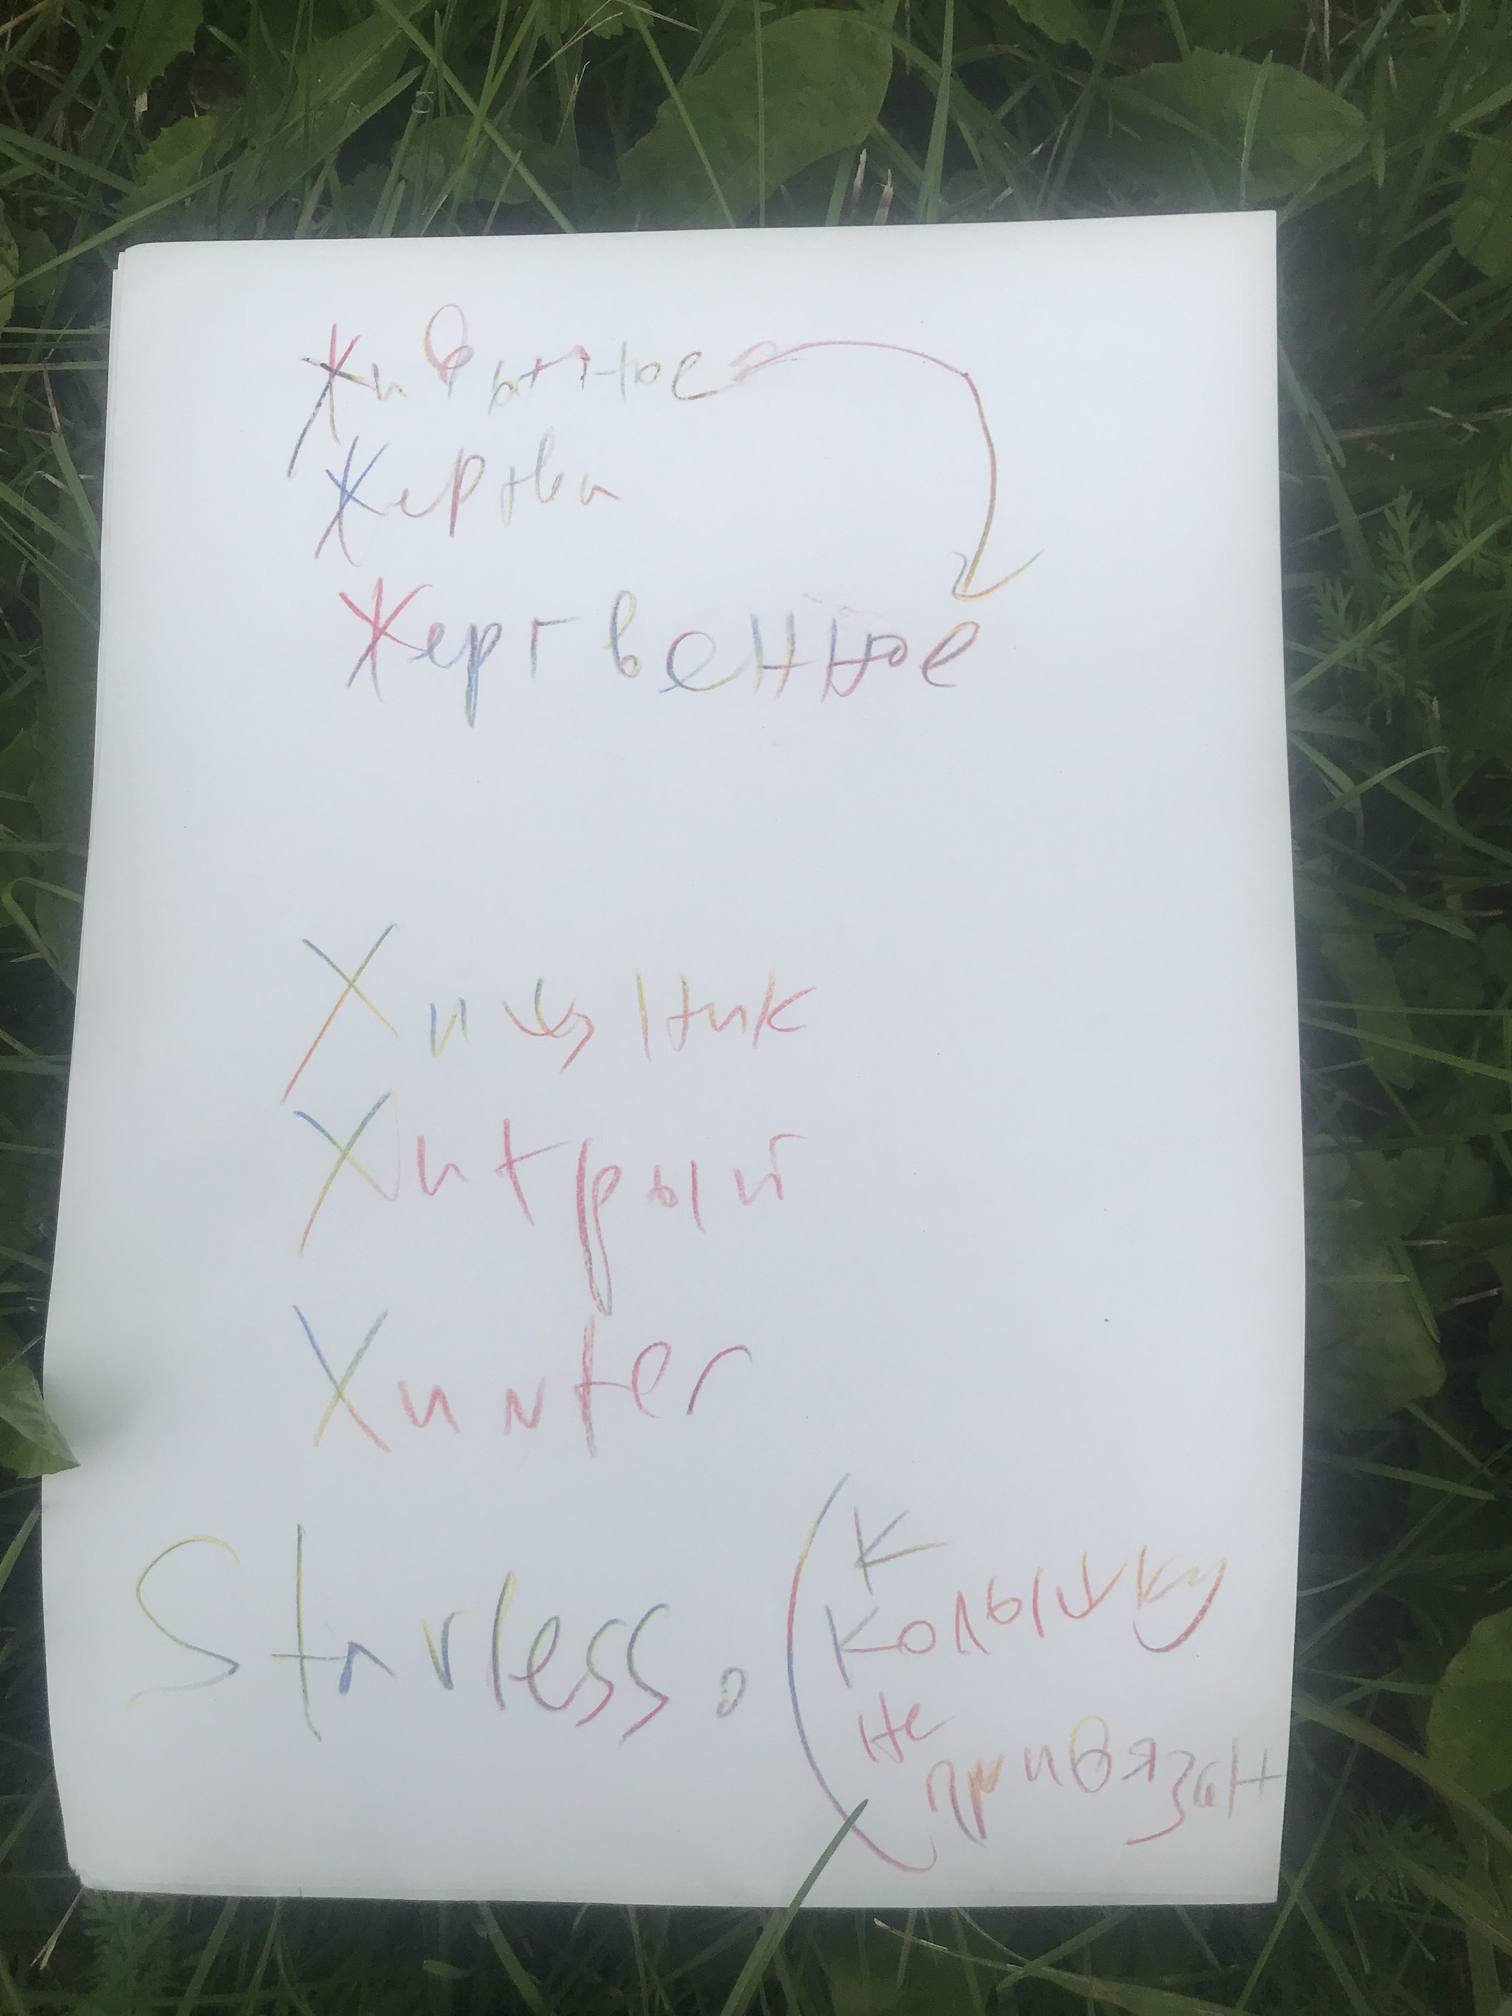 Животное
Жертва
Жертвенное
Хищник
Хитрый
Хиnter
Starless. (к
колышку
не
привязан